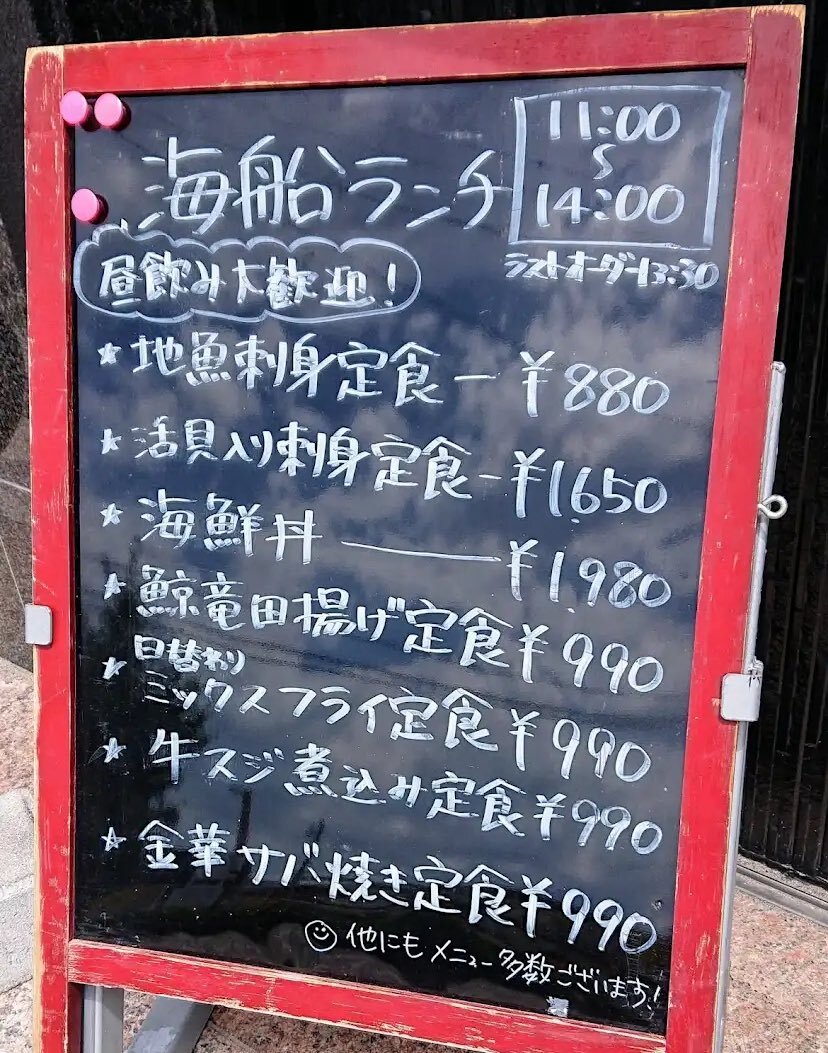 海船ランチ
11:00
〜
14:00
ラストオーダー13:30
昼飲み大歓迎!
★地魚刺身定食ー¥880
★活貝入り刺身定食ー¥1,650
★海鮮丼ー¥1,980
★鯨竜田揚げ定食¥990
★日替わり
ミックスフライ定食¥990
★牛スジ煮込み定食¥990
★金華サバ焼き定食¥990
他にもメニュー多数ございます!